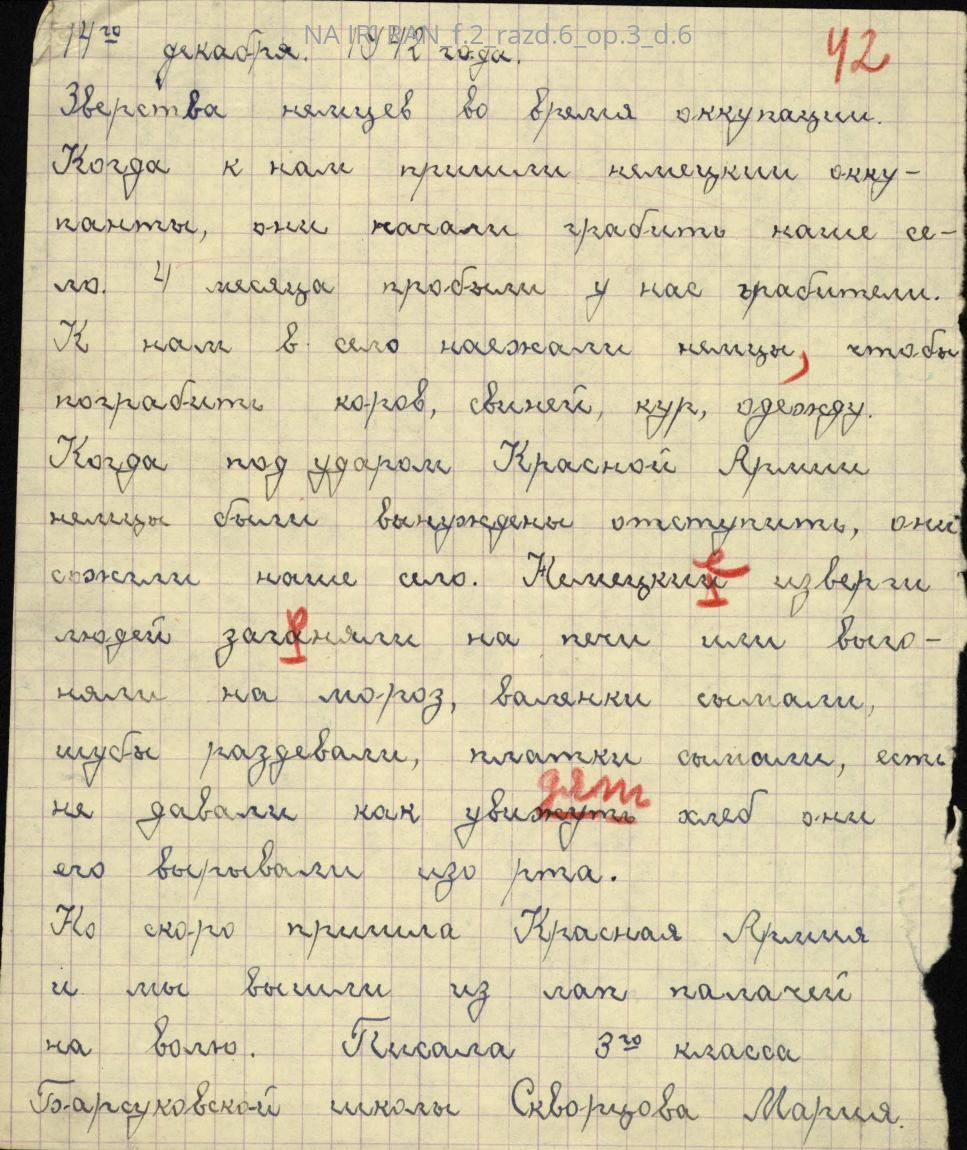 NA IRI RAN f.2_razd.6_op.3_d.6
14го декабря. 1942 года.
42
Зверства немцев во время оккупации.
Когда к нам пришли немецкии окку-
панты, они начали грабить наше се-
ло. 4 месяца пробыли у нас грабители.
К нам в село наежали немцы, чтобы
пограбить коров, свиней, кур, одежду.
Когда под ударом Красной Армии
немцы были вынуждены отступить, они
сожгли наше село. Немецкий изверги
е
людей заганяли на печи или выго-
о
няли на мороз, валенки сымали,
шубы раздевали, платки сымали, есть
дят
не давали как увижуть хлеб они
его вырывали изо рта.
Но скоро пришла Красная Армия
и мы вышли из лап палачей
на волю. Писала 3го класса
Барсуковской школы Скворцова Мария.